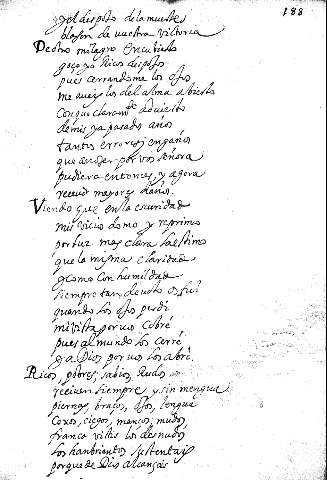 188
y el despojo de la muerte
blason de vuestra victoria
De otro milagro encubierto
goço ya ricos despojos
pues cerrandome los ojos
me aueis los del alma abierto
Con que claramte aduierto
de mis ya pasados años
tantos errores y engaños
que por vos señora
pudiera entonces, y agora
receuir mayores daños.
Viendo que en la escuridad
mi vicio domo y reprimo
por luz mas clara la estimo
que la misma claridad
y como con humildad
siempre tan deuoto os fui
quando los ojos perdi
mi vista por vos cobré
pues al mundo los cerré
y a Dios por vos los abri.
Ricos, pobres, sabios, Rudos
reciuen siempre y sin mengua
piernas, braços, ojos, lengua
Coxos, ciegos, mancos, mudos,
franca vistis los desnudos
los hanbrientos sustentais
porque de Dios alcançais